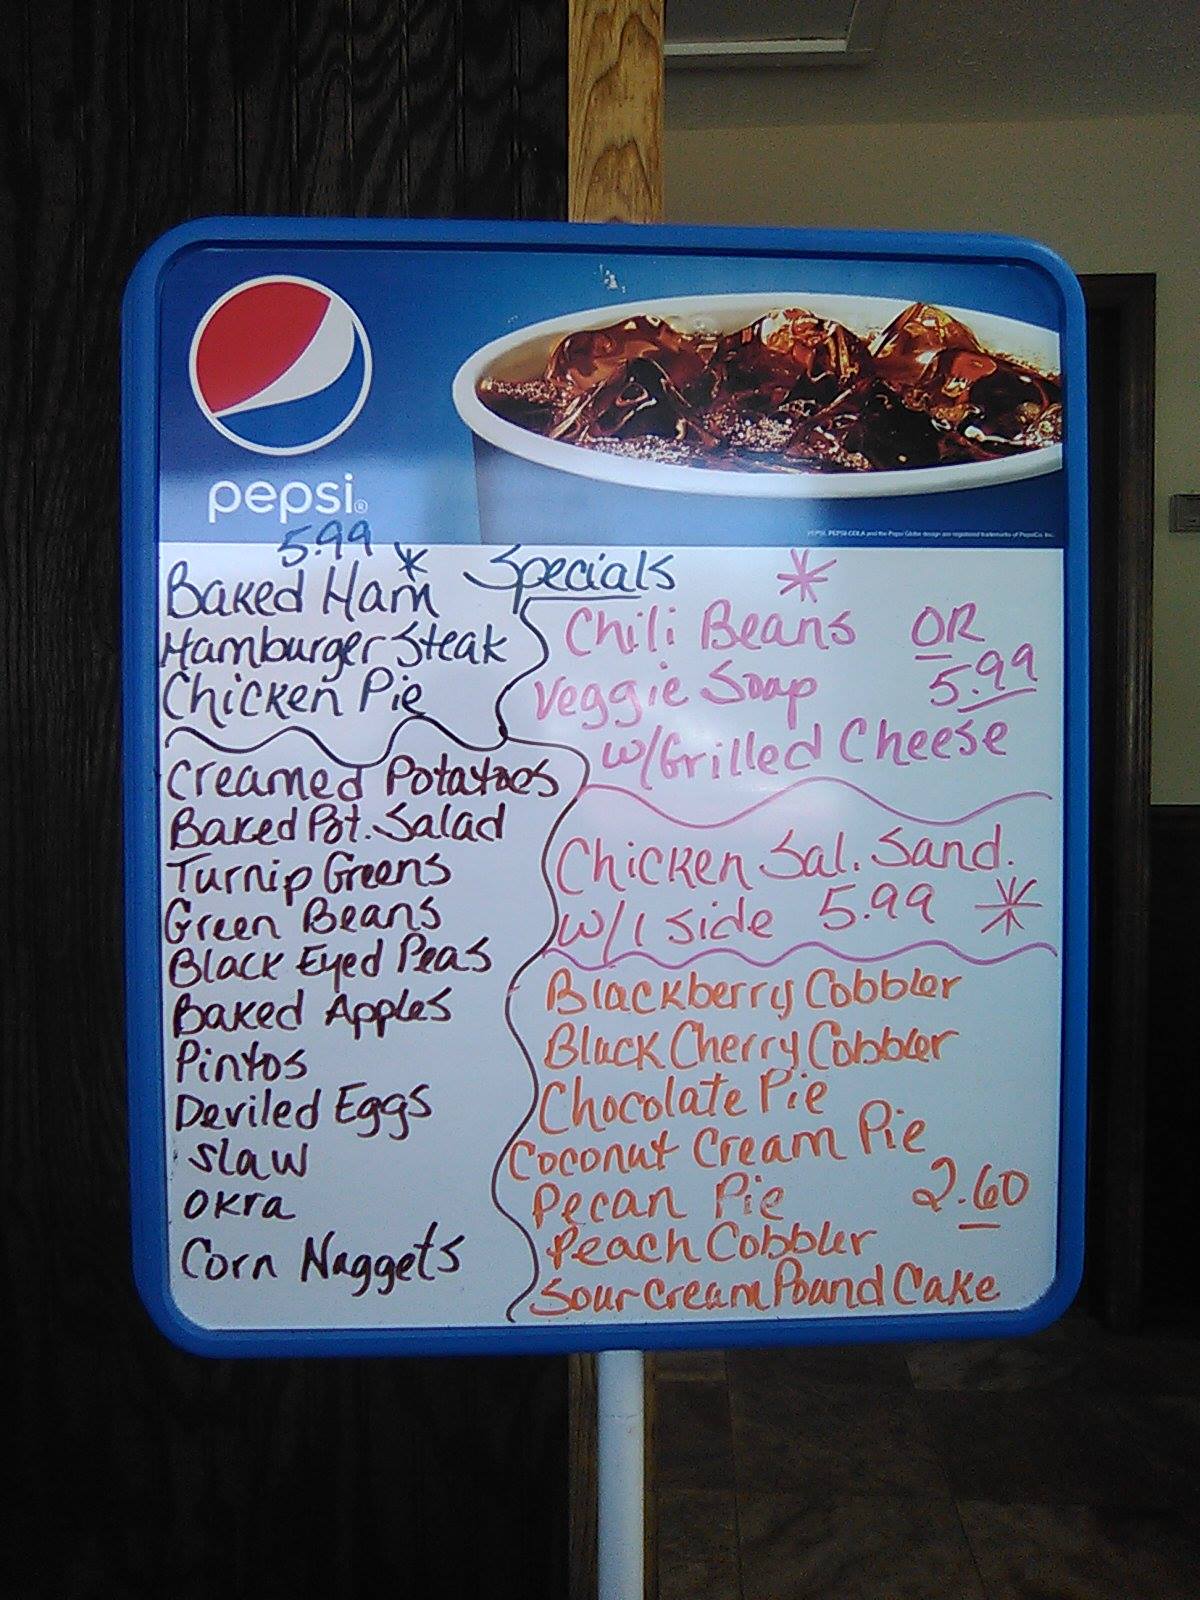 pepsi®
5.99
Specials
Baked Ham *
Hamburger Steak
Chicken Pie
Creamed Potatoes
Baked Pot. Salad
Turnip Greens
Green Beans
Black Eyed Peas
Baked Apples
Pintos
Deviled Eggs
Slaw
Okra
Corn Nuggets
*
Chili Beans OR
Veggie Soup 5.99
w/Grilled Cheese
Chicken Sal. Sand.
w/1 Side 5.99 *
Blackberry Cobbler
Black Cherry Cobbler
Chocolate Pie
Coconut Cream Pie
Pecan Pie 2.60
Peach Cobbler
Sour Cream Pound Cake